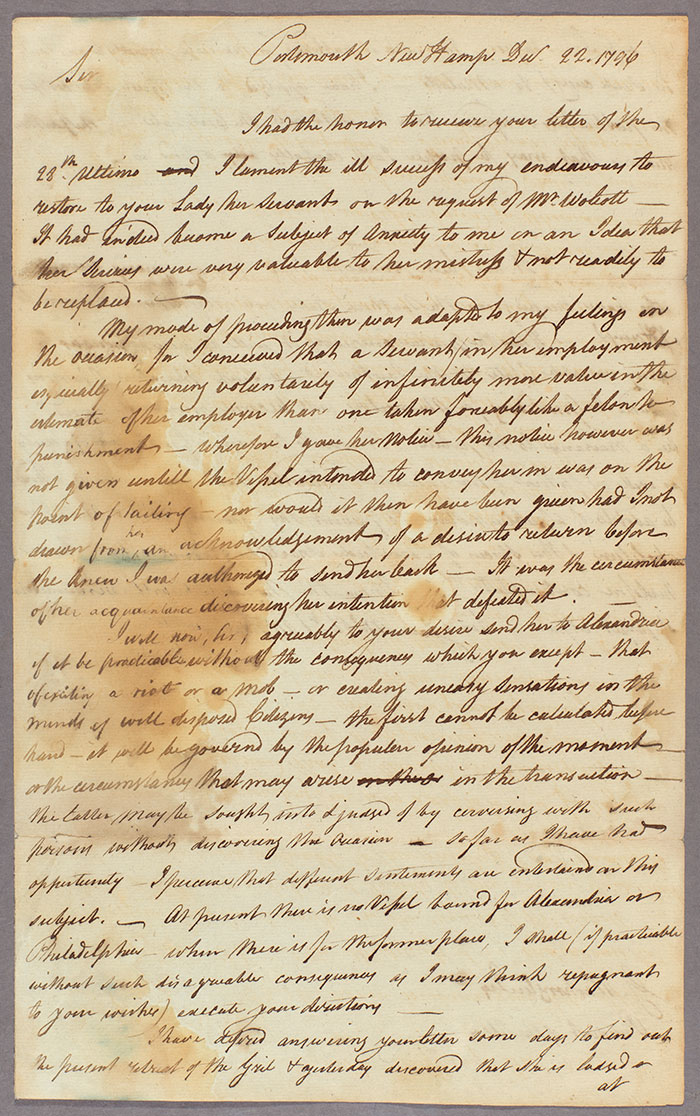 Portsmouth New Hamp Decr 22. 1796
Sir
I had the honor to receive your letter of the
28th. Ultimo and I lament the ill success of my endeavours to
restore to your Lady her servant on the request of Mr. Wolcott —
It had indied become a Subject of Anxiety to me on an Idea that
her Services were very valuable to her mistress & not readily to
be replaced. —
My mode of proceeding then was adapted to my feelings on
the occasion for I conceived that a Servant (in her employment
especially) returning voluntarily of infinitely more value in the
estimate of her employer than one taken forceably like a felon to
punishment — wherefore I gave her Notice — this notice however was
not given untill the Vessel intended to convey her in was on the
point of sailing — nor would it then have been given had I not
drawn from her, an acknowledgement of a desire to return before
she knew I was authorized to send her back — It was the circumstance
of her acquaintance discovering her intention that defeated it.
I will now, Sir, agreeably to your desire send her to Alexandria
if it be practicable without the consequences which you except — that
of exciting a riot or a mob — or creating uneasy sensations in the
minds of well disposed Citizens — the first cannot be calculated before
hand — it will be governed by the popular opinion of the moment —
or the circumstances that may arise in the transaction —
the latter may be sought into & judged of by conversing with such
persons without discovering the occasion — so far as I have had
opportunity — I perceive that different sentiments are entertaind on this
subject. — At present there is no Vessel bound for Alexandria or
Philadelphia — when there is for the former place, I shall (if practicable
without such disagreeable consequences as I may think repugnant
to your wishes) execute your directions —
I have defered answering your letter some days to find out
the present retreat of the Girl & yesterday discovered that she is lodged
at